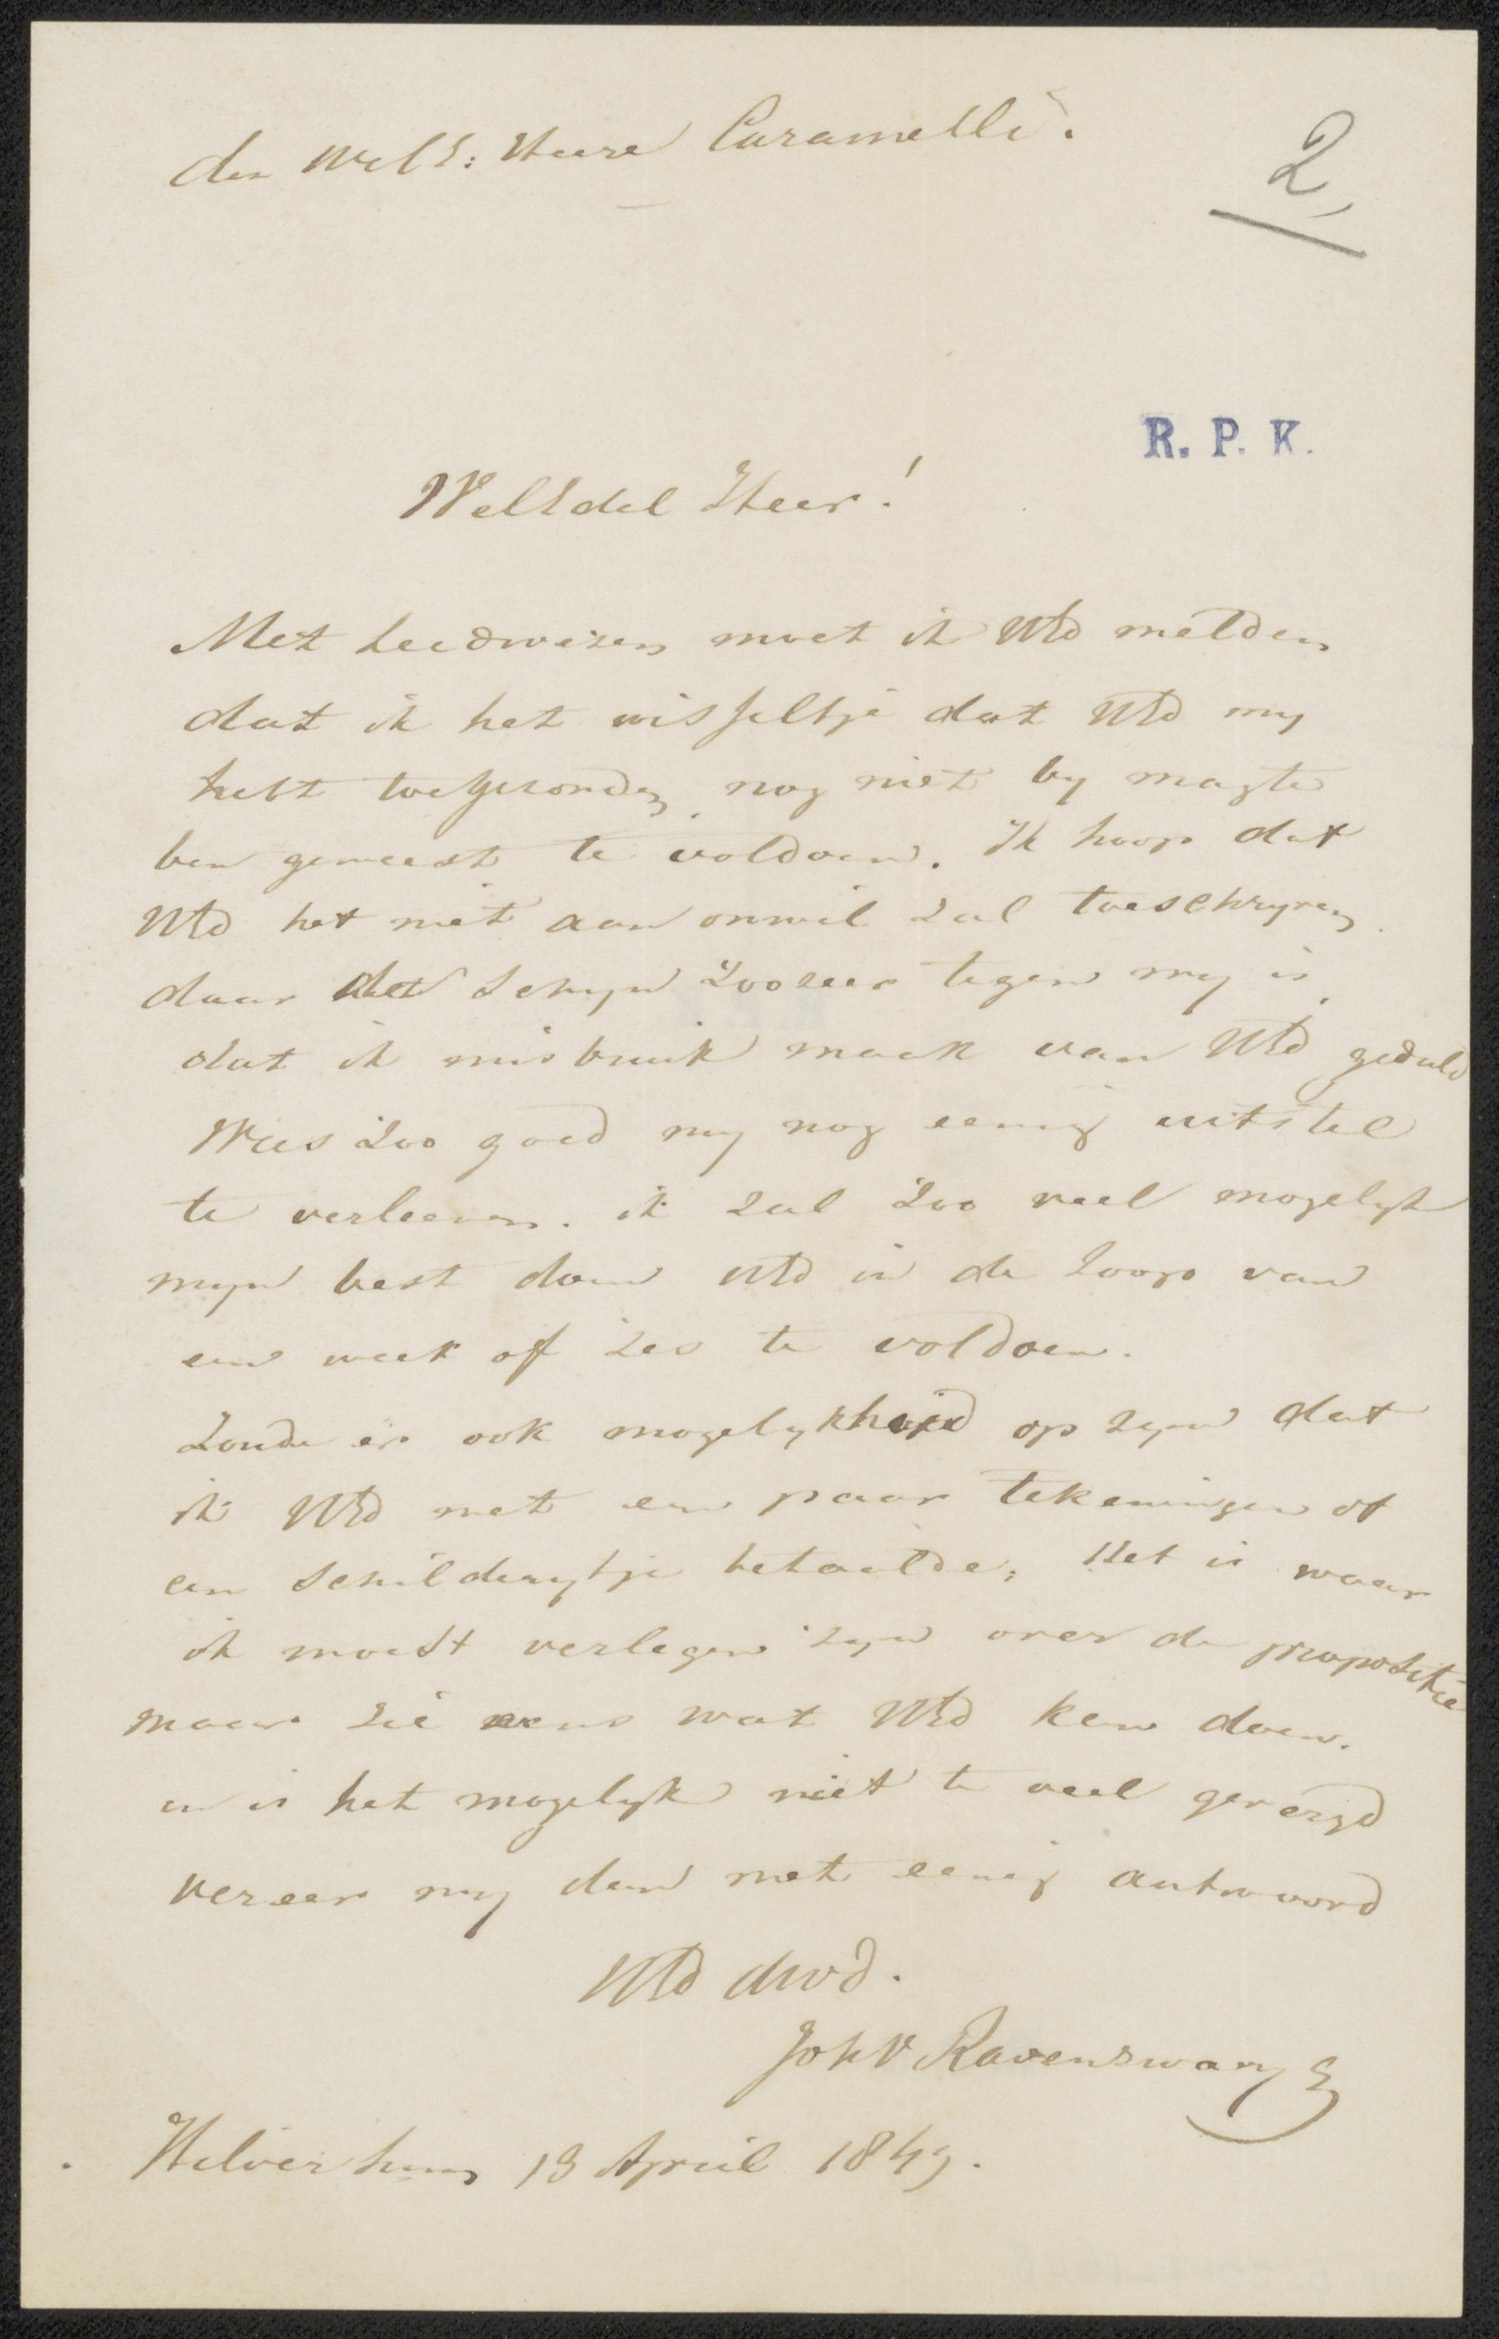 den WelE: Heere Caramelli.
2
R. P. K.
WelEdel Heer!
Met Leedwezen moet ik UEd melden
dat ik het wisseltje dat UEd my
hebt toegezonden, nog niet by magte
ben geweest te voldoen. Ik hoop dat
UEd het niet aan onwil zal toeschryven
daar de Schyn zoozeer tegen my is,
dat ik misbruik maak van UEd geduld
Wees zoo goed my nog eenig uitstel
te verleenen. ik zal zoo veel mogelyk
myn best doen UEd in de Loop van
een week of zes te voldoen.
Zoude er ook mogelykheid op zyn dat
ik UEd met een paar Tekeningen of
een Schilderytje betaalde; Het is waar
ik moest verlegen zyn over de propositie
maar zie eens wat UEd kan doen.
en is het mogelyk niet te veel gevergd
vereer my dan met eenig antwoord
UEd dwd.
Joh V Ravenswaay
Hilversum 13 April 1849.